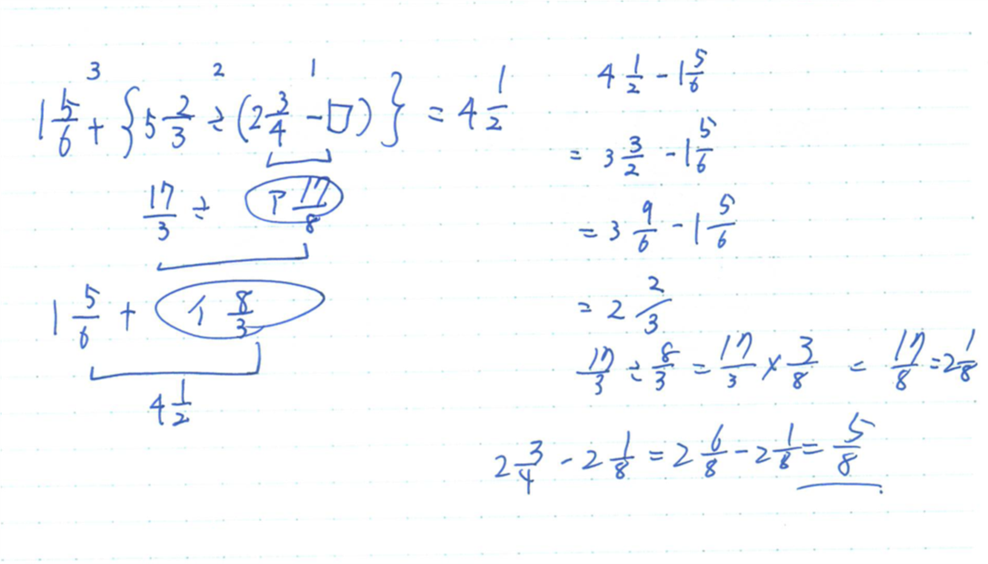 3 2 1
1 5/6 + {5 2/3 ÷ (2 3/4 - □)} = 4 1/2
17/3 ÷ ア 17/8
1 5/6 + イ 8/3
4 1/2
4 1/2 - 1 5/6
= 3 3/2 - 1 5/6
= 3 9/6 - 1 5/6
= 2 2/3
17/3 ÷ 8/3 = 17/3 × 3/8 = 17/8 = 2 1/8
2 3/4 - 2 1/8 = 2 6/8 - 2 1/8 = 5/8